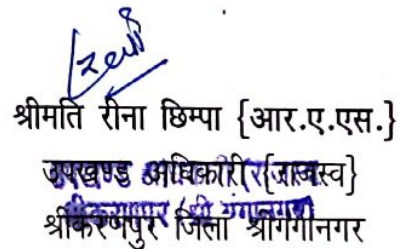 श्रीमति रीना छिम्पा {आर.ए.एस.}
उपखण्ड अधिकारी {राजस्व}
श्रीकरणपुर जिला श्रीगंगानगर